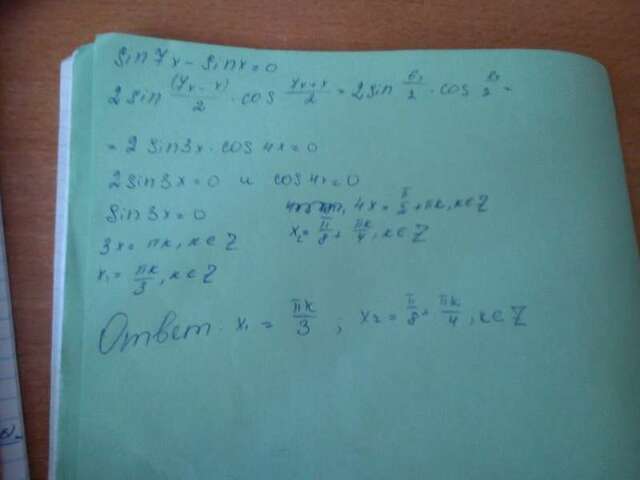 sin7x - sinx = 0
2 sin (7x - x)/2 · cos 7x+x/2 = 2 sin 6x/2 · cos 8x/2 =
= 2 sin3x · cos 4x = 0
2 sin3x = 0 и cos 4x = 0
sin3x = 0 4x = π/2 + πk, k∈Z
3x = πk, k∈Z x₂ = π/8 + πk/4, k∈Z
x₁ = πk/3, k∈Z
Ответ: x₁ = πk/3 ; x₂ = π/8 + πk/4, k∈Z